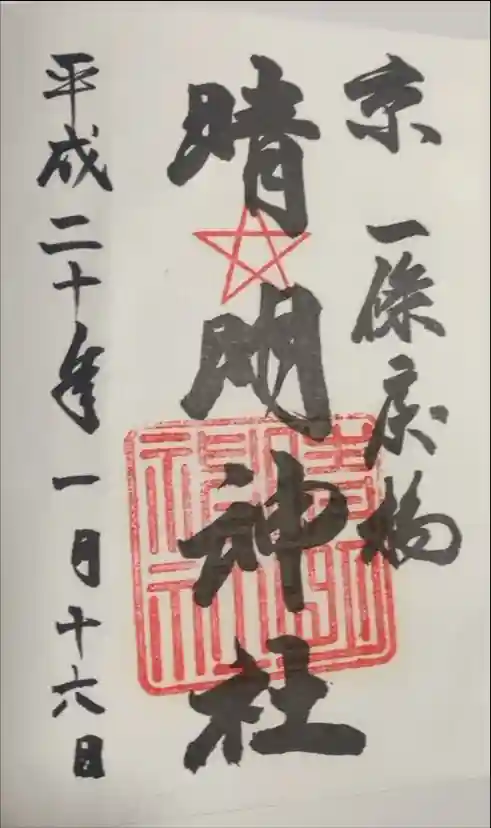 京 一條戻橋
晴明神社
晴明神社
平成二十年一月十六日